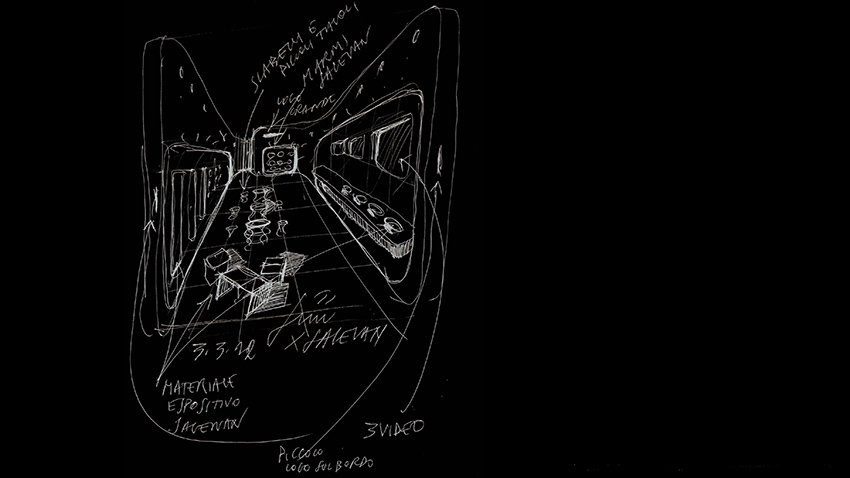 SGABELLI E
PICCOLI TAVOLI
MARMI
SALEVAN
LOGO
GRANDE
3.3.12
X SALEVAN
MATERIALE
ESPOSITIVO
SALEVAN
3 VIDEO
PICCOLO
LOGO SUL BORDO